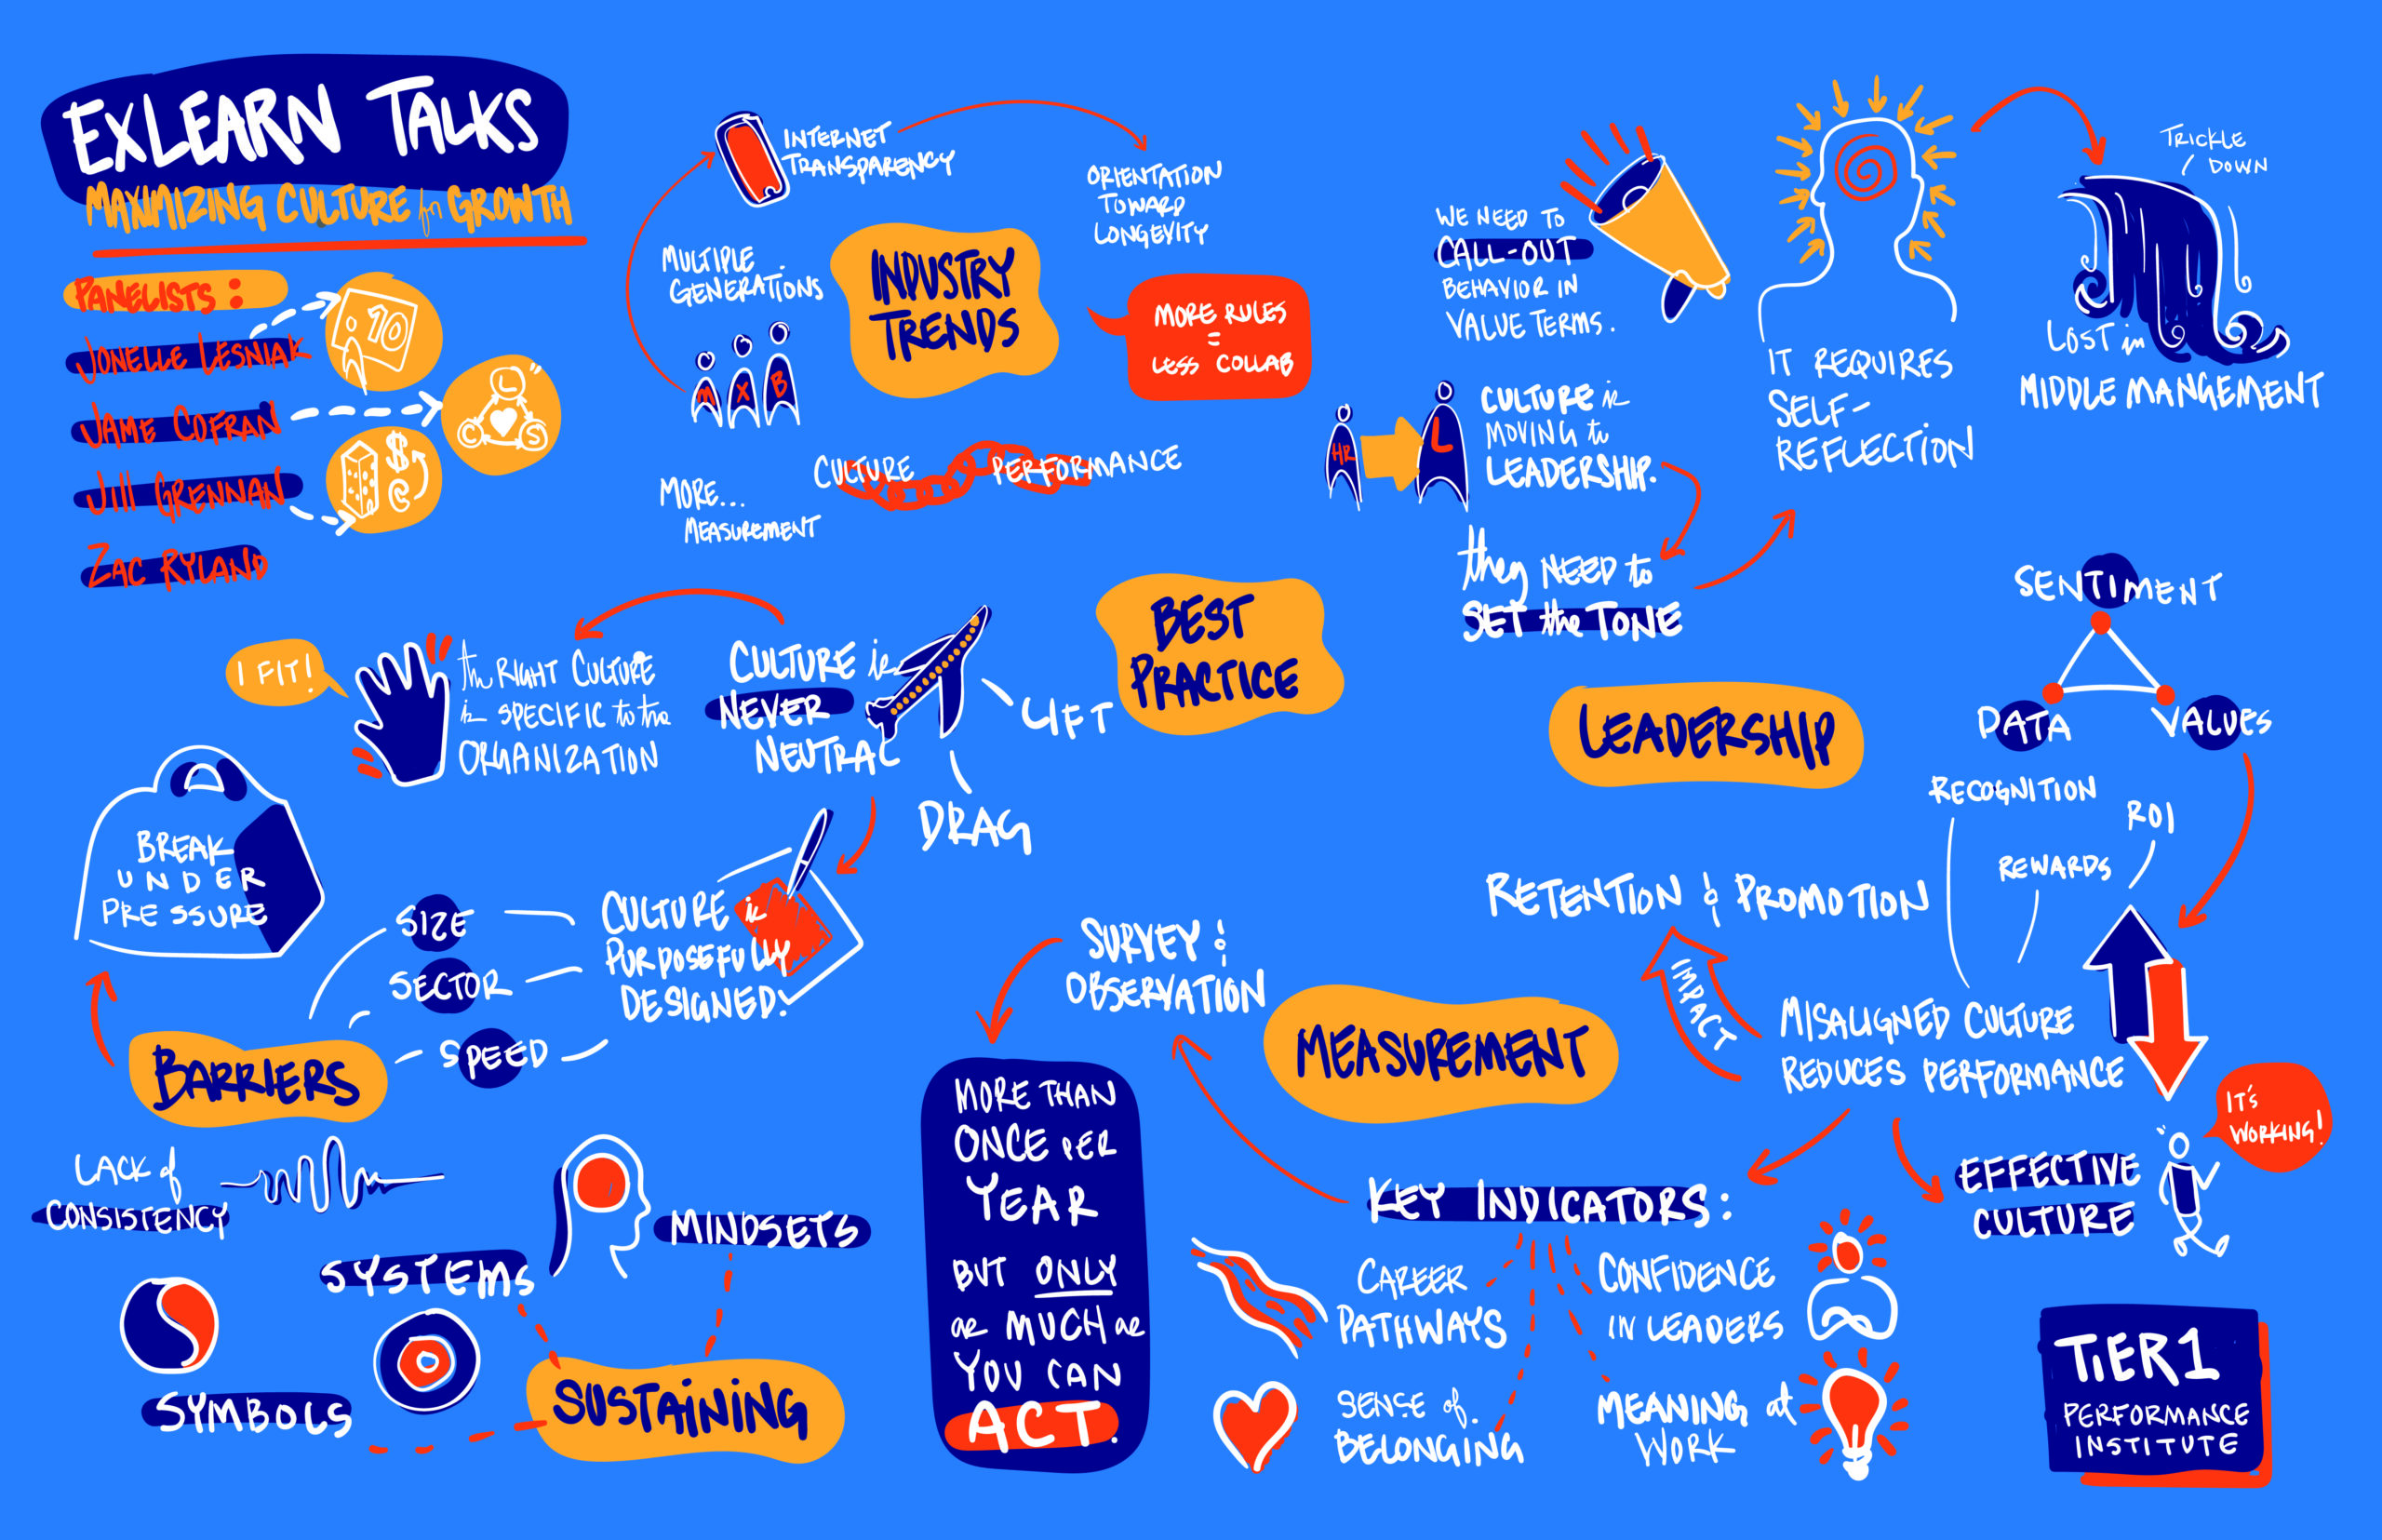 EXLEARN TALKS
MAXIMIZING CULTURE for GROWTH
PANELISTS:
JONELLE LESNIAK
JAME COFRAN
JILL GRENNAN
ZAC RYLAND
10
L
C
S
$
C
INTERNET
TRANSPARENCY
ORIENTATION
TOWARD
LONGEVITY
MULTIPLE
GENERATIONS
M X B
INDUSTRY
TRENDS
MORE RULES
=
LESS COLLAB
CULTURE PERFORMANCE
MORE...
MEASUREMENT
WE NEED TO
CALL-OUT
BEHAVIOR IN
VALUE TERMS.
HR
L
CULTURE is
MOVING to
LEADERSHIP.
they NEED to
SET the TONE
IT REQUIRES
SELF-
REFLECTION
TRICKLE
DOWN
LOST in
MIDDLE MANGEMENT
I FIT!
the RIGHT CULTURE
is SPECIFIC to the
ORGANIZATION
CULTURE is
NEVER
NEUTRAL
LIFT
DRAG
BEST
PRACTICE
LEADERSHIP
SENTIMENT
DATA
VALUES
RECOGNITION
ROI
REWARDS
RETENTION & PROMOTION
IMPACT
MISALIGNED CULTURE
REDUCES PERFORMANCE
IT'S
WORKING!
EFFECTIVE
CULTURE
BREAK
UNDER
PRESSURE
SIZE
SECTOR
SPEED
CULTURE is
PURPOSEFULLY
DESIGNED!
BARRIERS
LACK of
CONSISTENCY
SURVEY &
OBSERVATION
MEASUREMENT
MORE THAN
ONCE PER
YEAR
BUT ONLY
as MUCH as
YOU CAN
ACT.
KEY INDICATORS:
CAREER
PATHWAYS
CONFIDENCE
IN LEADERS
SENSE of
BELONGING
MEANING at
WORK
MINDSETS
SYSTEMS
SYMBOLS
SUSTAINING
TIER1
PERFORMANCE
INSTITUTE